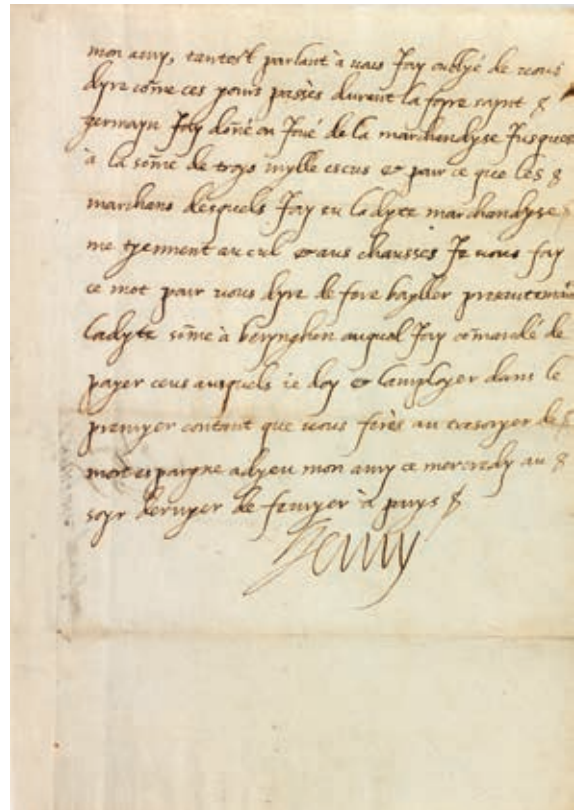 mon amy, tantost parlant à vous Jay oublyé de vous
dyre cõme ces jours passès durant la foyre saynt
germayn Jay doñé ou Joué de la marchandyse Jusques
à la sõme de troys mylle escus & par ce que les
marchans desquels Jay eu ladyte marchandyse
me tyennent au cul & aus chausses Je vous fay
ce mot pour vous dyre de fere bayller presentemãt
ladyte sõme à berynghen auquel Jay cõmandé de
payer ceus ausquels ie doy & lamployer dans le
premyer contant que vous ferès au tresoryer de
mon espargne adyeu mon amy ce mercredy au
soyr dernyer de fevryer à parys
Henry